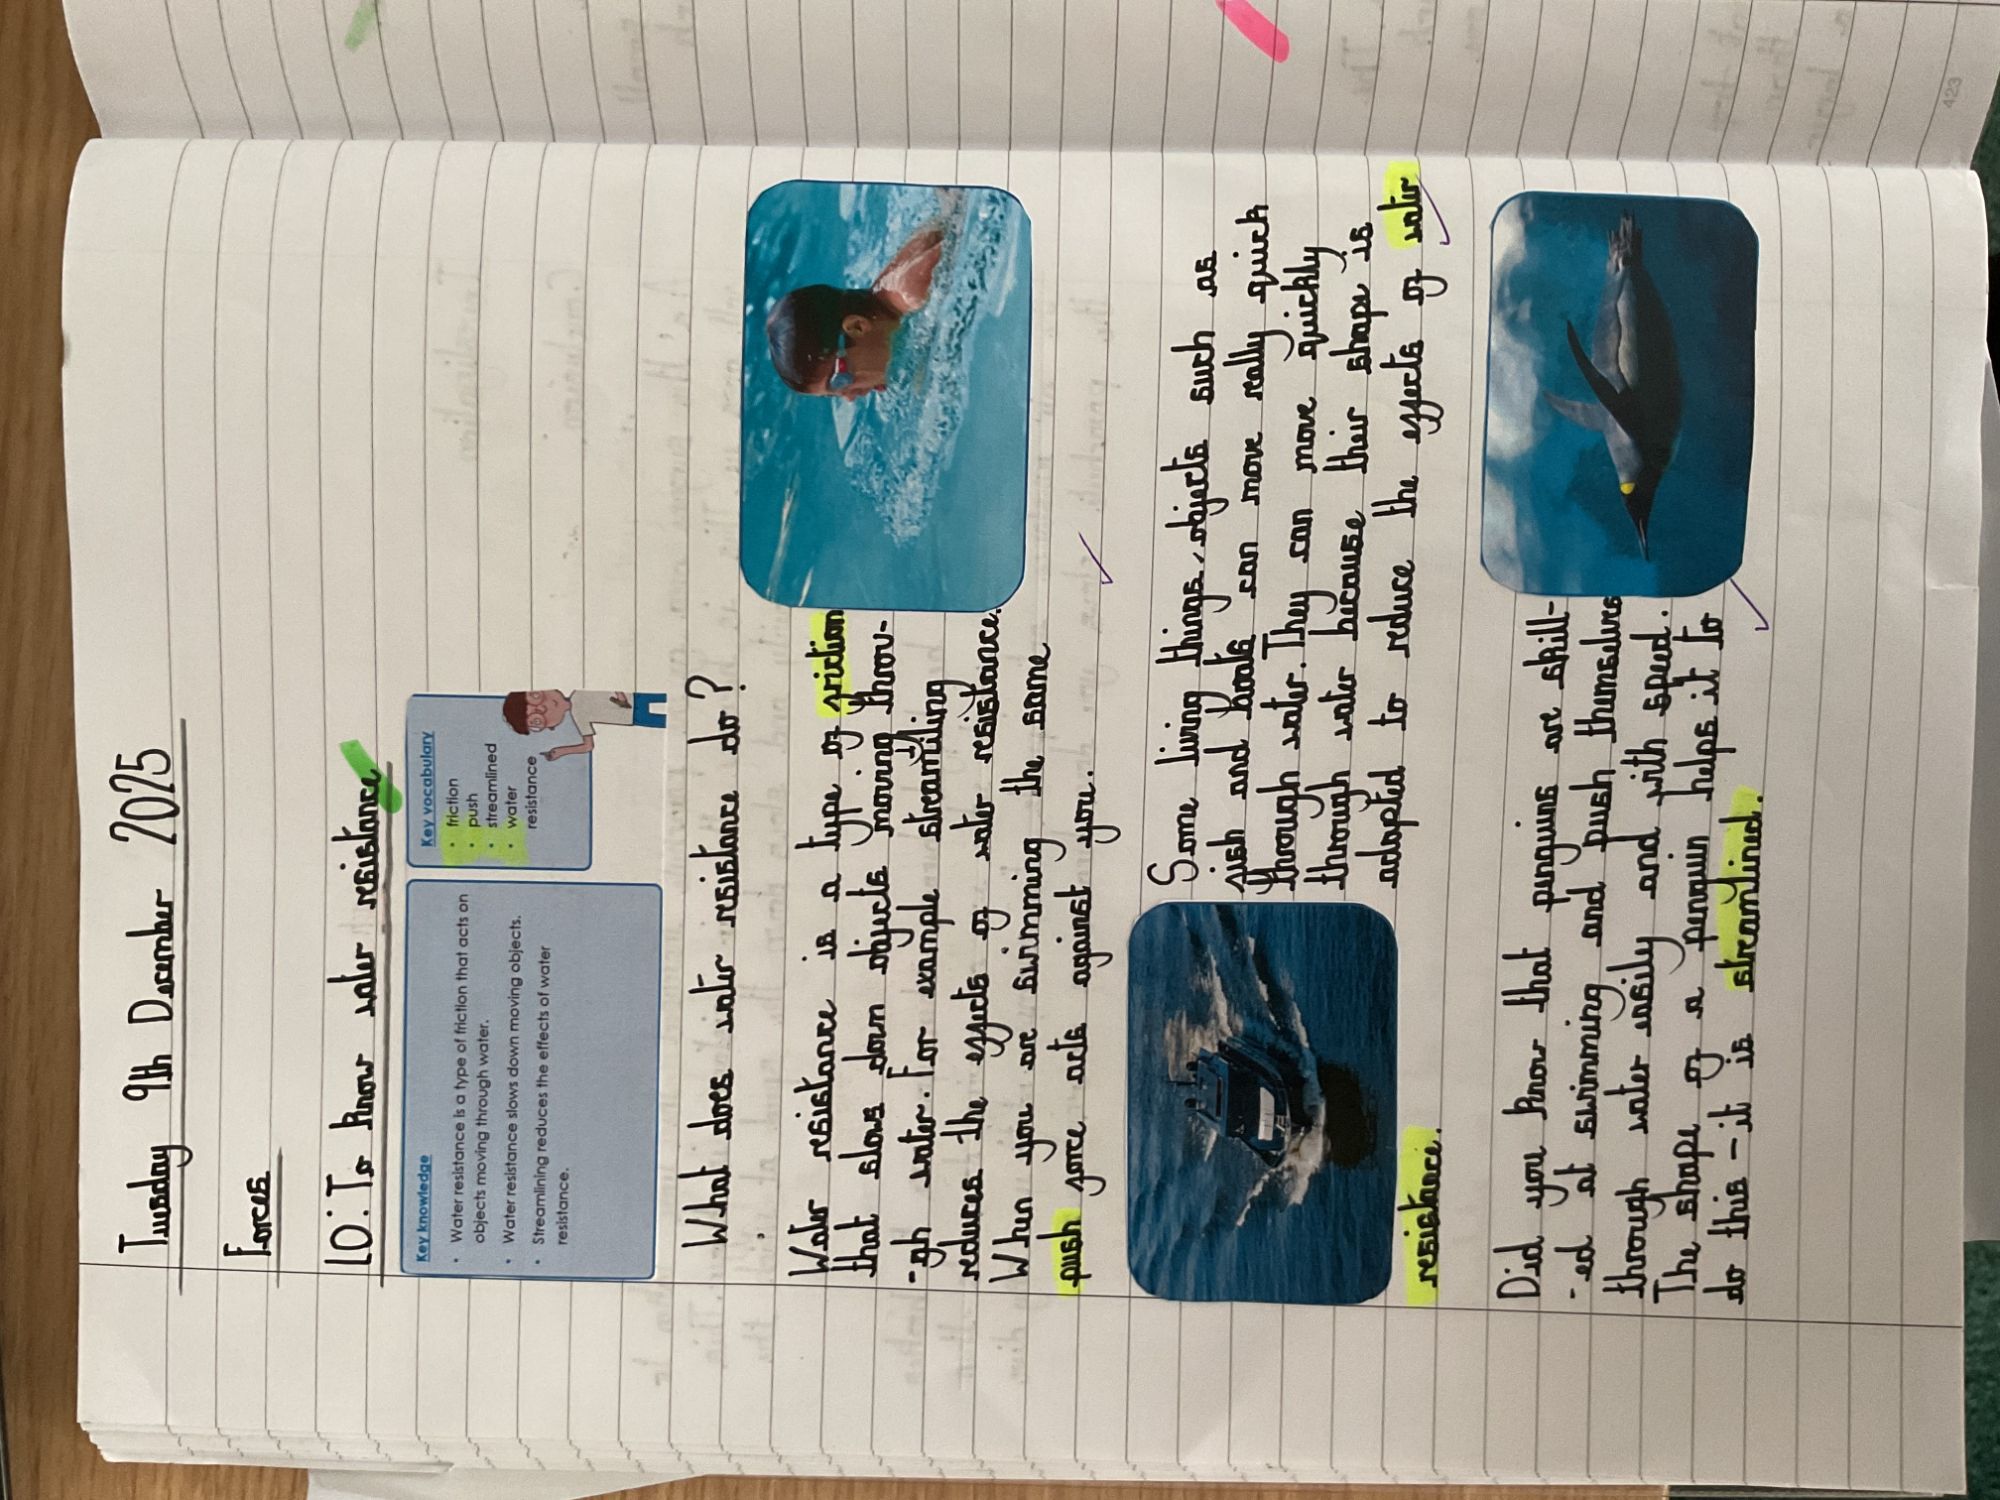 Tuesday 9th December 2025
Forces
LO: To know water resistance
Key knowledge
• Water resistance is a type of friction that acts on
objects moving through water.
• Water resistance slows down moving objects.
• Streamlining reduces the effects of water
resistance.
Key vocabulary
• friction
• push
• streamlined
• water
resistance
What does water resistance do?
Water resistance is a type of friction
that slows down objects moving throu-
-gh water. For example streamling
reduces the effects of water resistance.
When you are swimming the same
push force acts against you.
Some living things, objects such as
fish and boats can move really quick
through water. They can move quickly
through water because their shape is
adapted to reduce the effects of water
resistance.
Did you know that penguins are skill-
-ed at swimming and push themselves
through water easily and with speed.
The shape of a penguin helps it to
do this - it is streamlined.
423